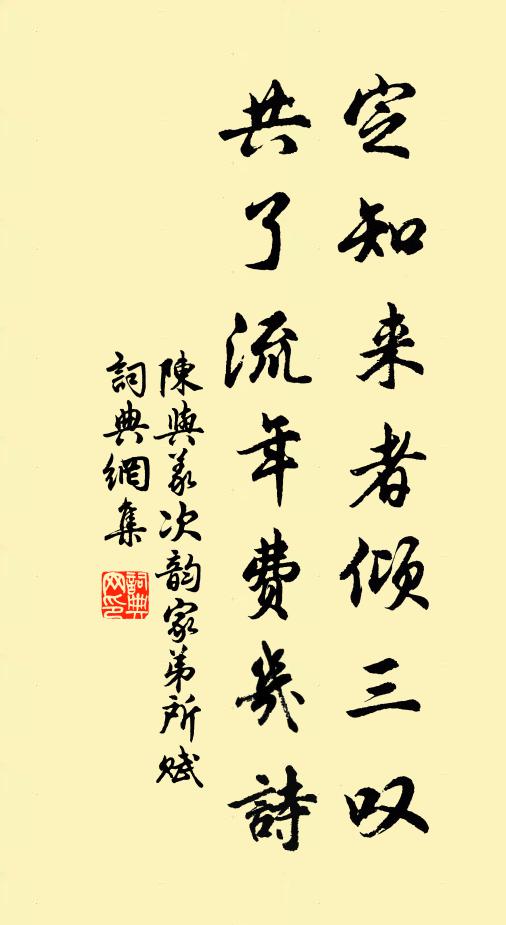 定知来者倾三叹
共了流年费几詩
陳與义次韵家弟所赋
詞典網集
詞典网印